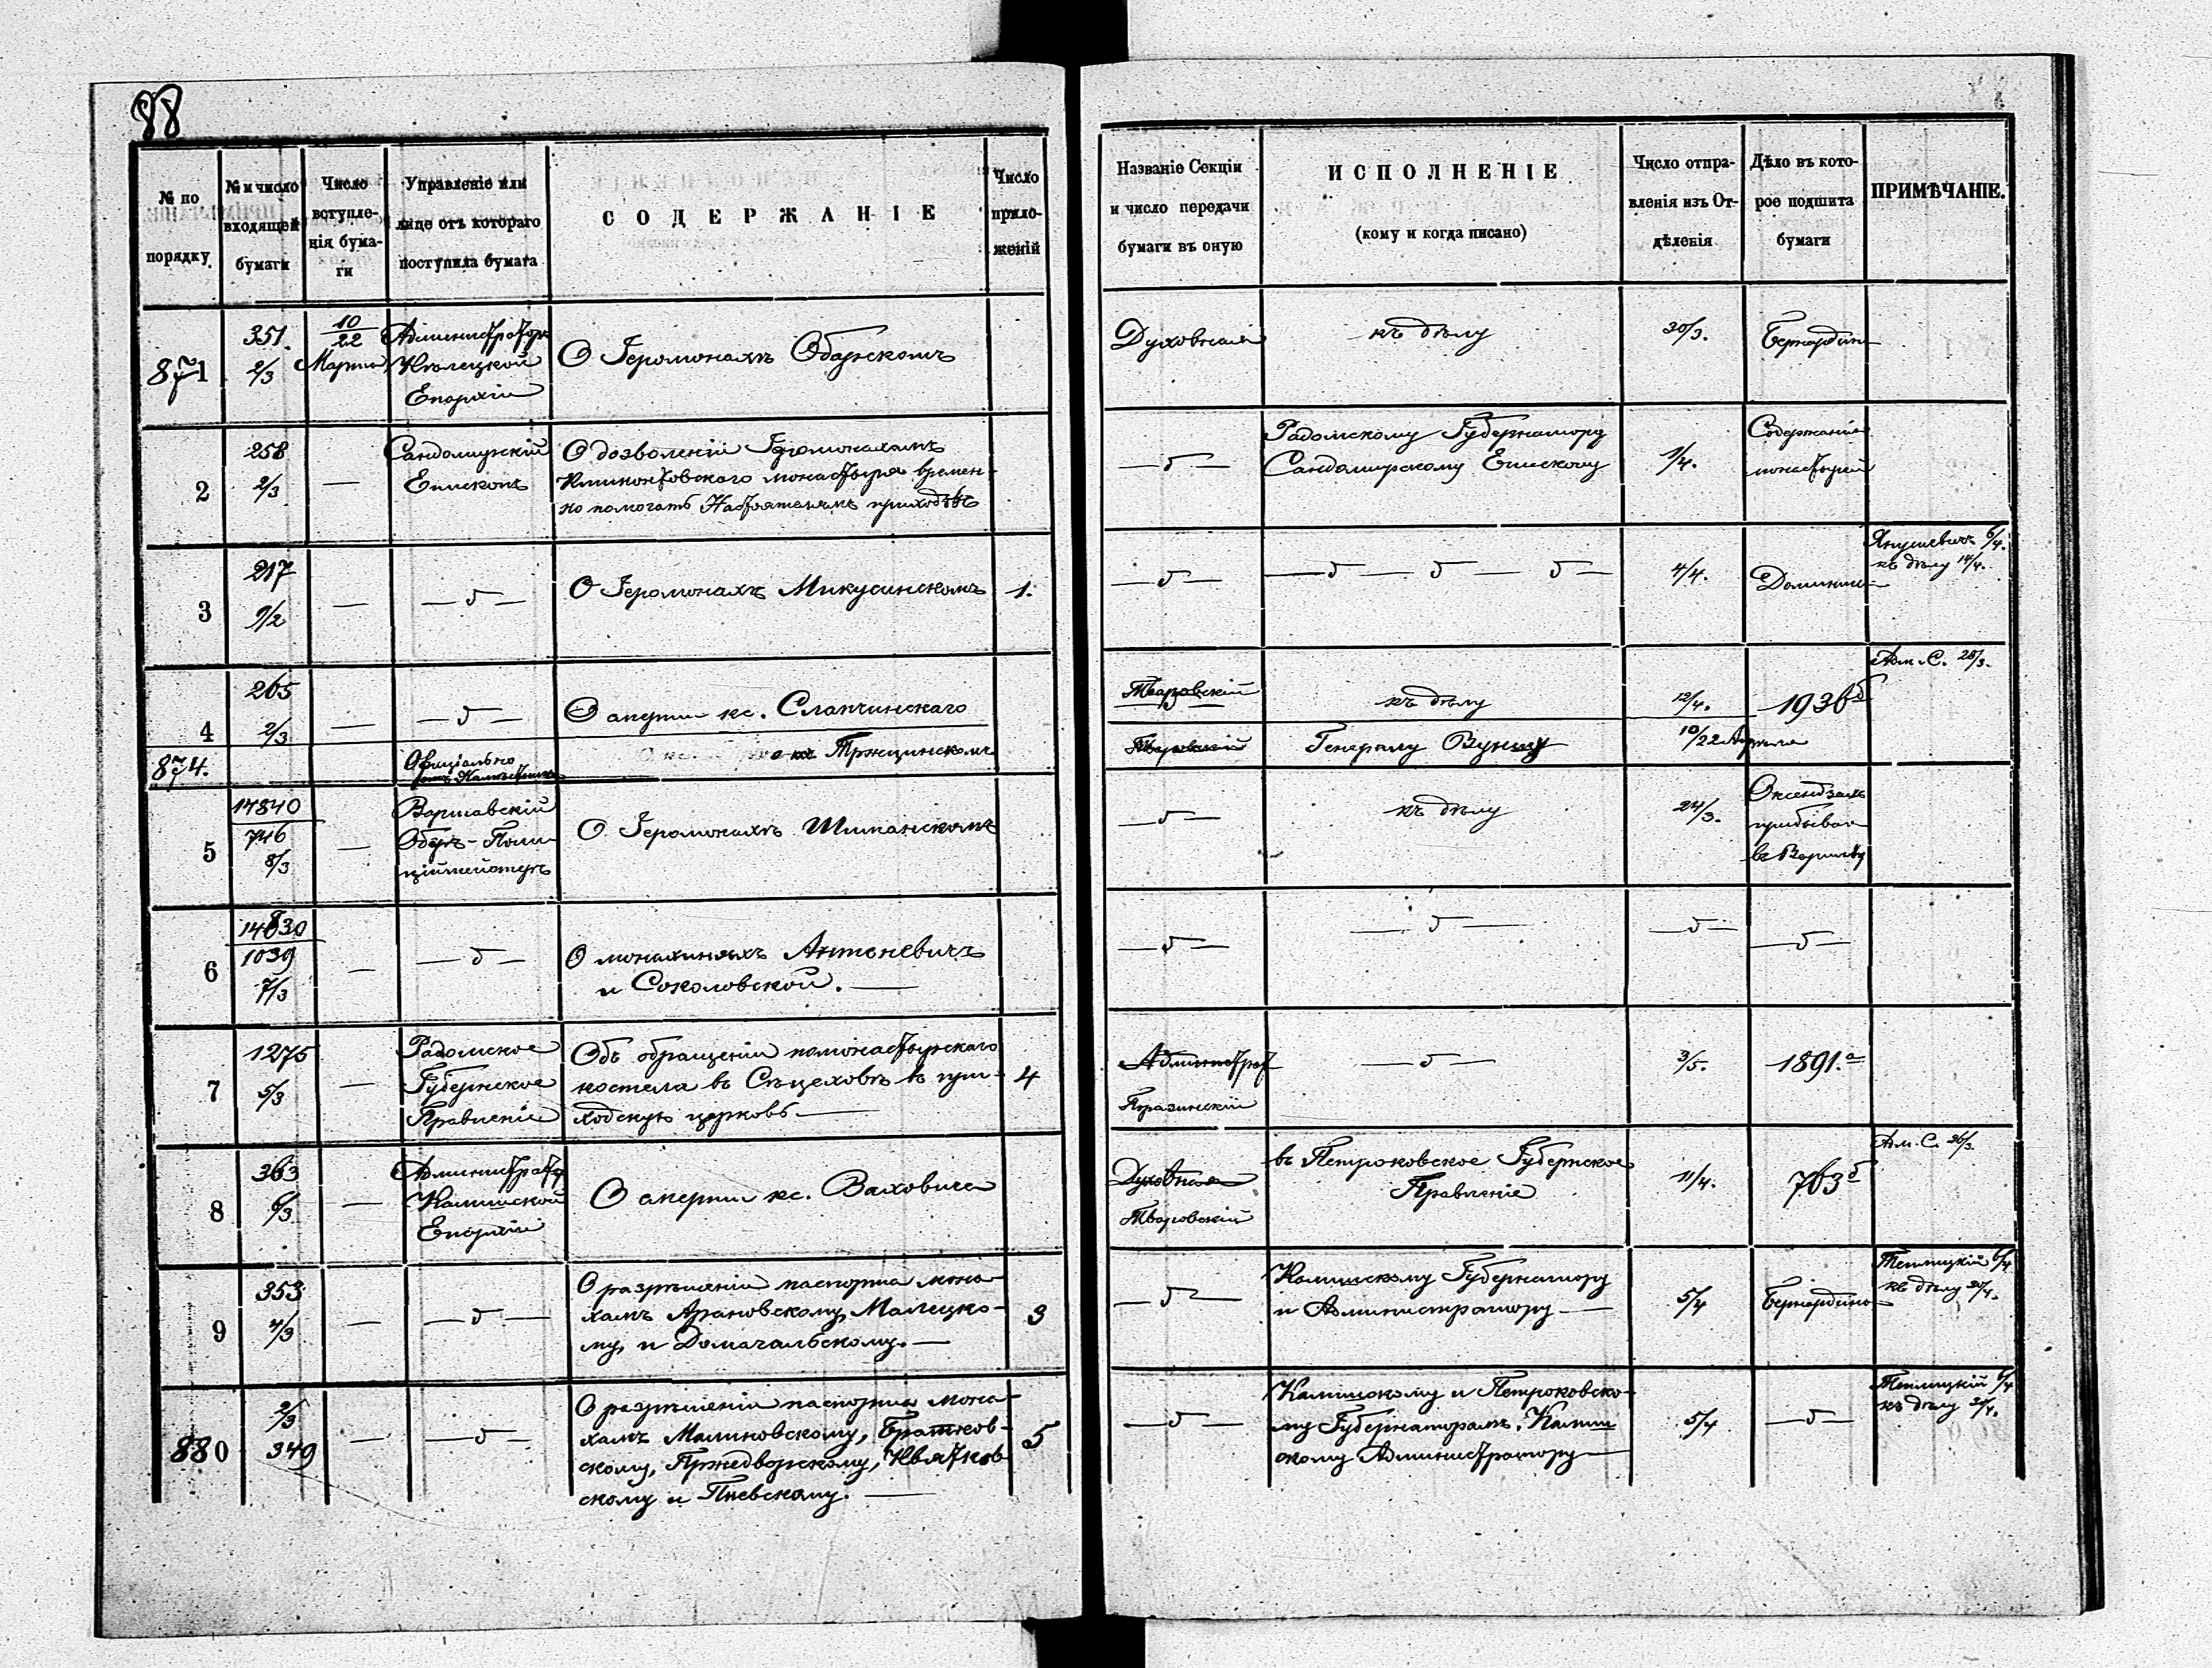 88
№ по порядку
№ и число входящей бумаги
Число вступленія бумаги
Управленіе или лице отъ котораго поступила бумага
СОДЕРЖАНІЕ
Число приложеній
Названіе Секціи и число передачи бумаги въ оную
ИСПОЛНЕНІЕ (кому и когда писано)
Число отправленія изъ Отдѣленія
Дѣло въ которое подшита бумаги
ПРИМѢЧАНІЕ.
871
351.
2/3
10/22
Марта
Администраторъ
Кѣлецкой
Епархіи
О Іеромонахѣ Обарскомъ
Духовная
къ дѣлу
30/3.
Бернардин
2
258
2/3
—
Сандомирскій
Епископъ
О дозволеніи Іеромонахамъ
Климонтовскаго монастыря времен-
но помогать Настоятелямъ приходовъ
— δ —
Радомскому Губернатору
Сандомирскому Епископу
1/4.
Содержаніе
монастырей
3
217
9/2
—
— δ —
О Іеромонахѣ Микусинскомъ
1.
— δ —
— δ — δ — δ —
4/4.
Доминик
Янушевичъ 6/4.
къ дѣлу 14/4.
4
265
2/3
—
— δ —
О смерти кс. Слапчинскаго
Тваровскій
къ дѣлу
12/4.
1936 б
Адм. С. 28/3.
874.
Офиціально
Тржцинскомъ
Генералу
10/22 Апреля
5
14840
746
8/3
—
Варшавскій
Оберъ-Поли-
ціймейстеръ
О Іеромонахѣ Шиманскомъ
— δ —
къ дѣлу
24/3.
О ксендзахъ
прибывая
въ Варшаву
6
14830
1039
7/3
—
— δ —
О монахиняхъ Антоневичъ
и Соколовской. —
— δ —
— δ —
— δ —
— δ —
7
1275
5/3
—
Радомское
Губернское
Правленіе
Объ обращеніи помонастырскаго
костела въ Сѣцеховѣ въ при-
ходскую церковь —
4
Администрат
— δ —
3/5.
1891.а
8
363
6/3
—
Администратор
Калишской
Епархіи
О смерти кс. Ваховича
Духовная
Тваровскій
въ Петроковское Губернское
Правленіе
11/4.
763 б
Адм. С. 26/3.
9
353
4/3
—
— δ —
О разрѣшеніи паспорта мона-
хамъ Арановскому, Малецко-
му, и Домагальскому. —
3
— δ —
Калишскому Губернатору
и Администратору —
5/4
Бернардино
6/4
къ дѣлу
880
2/3
349
—
— δ —
О разрѣшеніи паспорта мона-
хамъ Малиновскому, Братков-
скому, Пржедворскому, Квятков-
скому и Пневскому. —
5
— δ —
Калишскому и Петроковско-
му Губернаторамъ. Калиш
скому Администратору —
5/4
— δ —
6/4
къ дѣлу